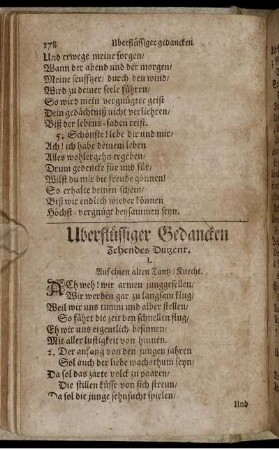 178 Uberflüssiger gedancken
Und erwege meine sorgen/
Wann der abend und der morgen/
Meine seufftzer/ durch den wind/
Wird zu deiner seele führen/
So wird mein vergnügter geist
Dein gedächtniß nicht verliehren/
Biß der lebens-faden reist.
5. Schönste! liebe dir und mir/
Ach! ich habe deinem leben
Alles wohlergehn ergeben/
Drum gedencke für und für/
Wilst du mir die freude gönnen!
So erhalte deinen schein/
Biß wir endlich wieder können
Höchst-vergnügt beysammen seyn.
Uberflüssiger Gedancken
Zehendes Dutzent.
1.
Auf einen alten Tantz-Knecht.
ACh weh! wir armen junggesellen/
Wir werden gar zu langsam klug/
Weil wir uns tumm und alber stellen/
So fährt die zeit den schnellen flug/
Eh wir uns eigentlich besinnen/
Mit aller lustigkeit von hinnen.
2. Der anfang von den jungen jahren
Sol auch der liebe wachsthum seyn/
Da sol das zarte volck zu paaren/
Die stillen küsse von sich streun/
Da sol die junge sehnsucht spielen/
Und